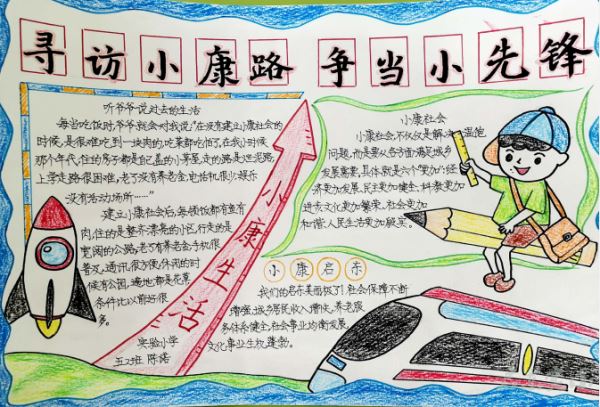 寻访小康路 争当小先锋
听爷爷说过去的生活
每当吃饭时,爷爷就会对我说:"在没有建小康社会的
时候,是很难吃到一块肉的,吃菜都吃不饱,在我小时候
那个年代,住的房子都是自己盖的小茅屋,走的路是山泥路,
上学走路很困难,老了没有养老金,电话机很少,娱乐
没有活动场所……"
建立小康社会后,每顿饭都有鱼有
肉,住的是整齐漂亮的小区,行走的是
宽阔的公路,老了有养老金,手机很
普及,通讯很方便,休闲的时
候有公园,遍地都是花草,
条件比以前好很
多。
实验小学
五2班 陈诺
小康生活
小康社会
小康社会,不仅仅是解决温饱
问题,而是要从各方面满足城乡
发展需要,具体就是六个"更加":经
济更加发展、民主更加健全、科教更加
进步、文化更加繁荣、社会更加
和谐、人民生活更加殷实。
小康启东
我们的启东美丽极了!社会保障不断
增强,城乡居民收入增快,养老服
务体系健全,社会事业均衡发展,
文化事业生机蓬勃。